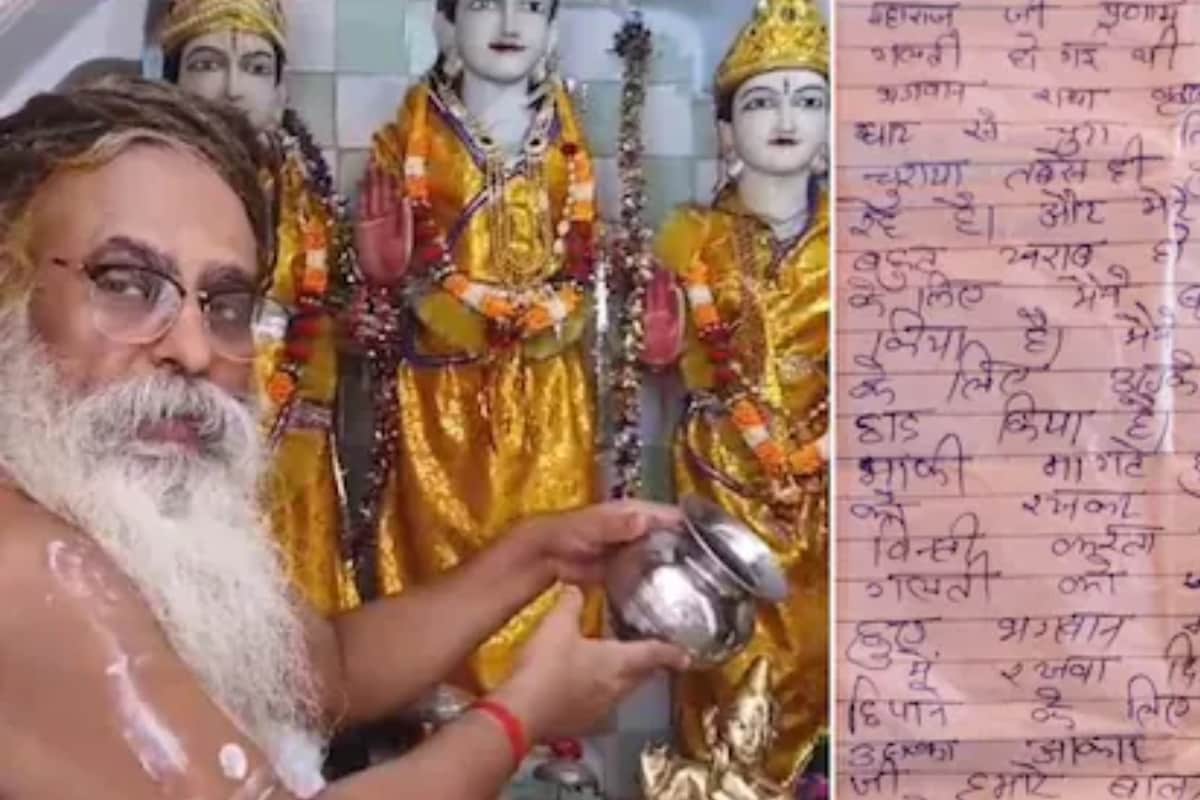 महाराज जी प्रणाम
गलती हो गई थी
भगवान राधा
चुरा
चुराया तबसे ही
रहे है। और मेरे
बहुत खराब
के लिए मैने
किया है। मैने
के लिए उनके
छाड किया है।
माफी मागते
को रखकर
विनती करता
गलती को
हुए भगवान
में रखवा
छिपाने के लिए
उनका आकार
जी हमारे बाल